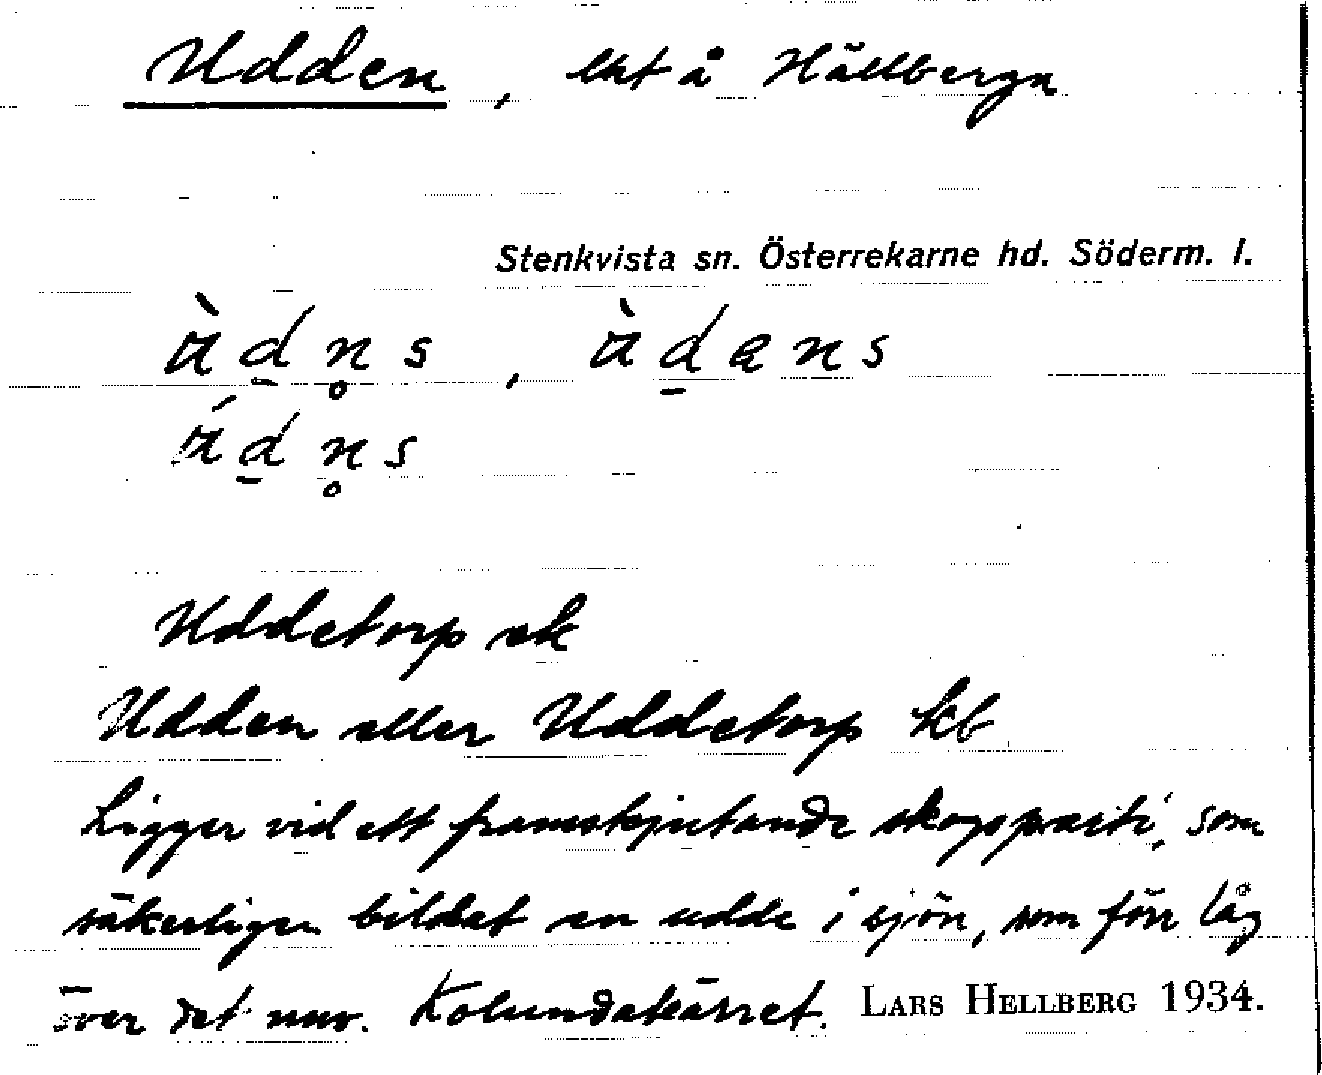 Udden, lht å Hällberga
Stenkvista sn. Österrekarne hd. Söderm. l.
ùd̲n̥s, ùd̲ens
úd̲n̥s
Uddetorp ek
Udden eller Uddetorp kb
Ligger vid ett framskjutande skogsparti, som
säkerligen bildat en udde i sjön, som förr låg
över det nuv. Kolundakärret. LARS HELLBERG 1934.